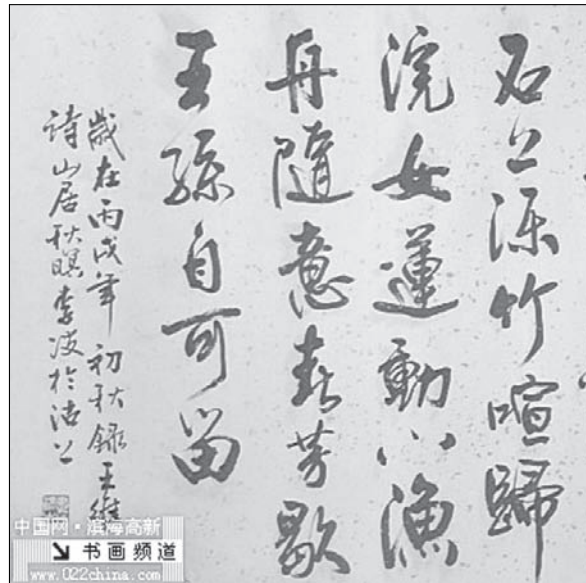 石上流竹喧歸
浣女蓮動下漁
舟隨意春芳歇
王孫自可留
歲在丙戌年初秋錄王維
詩山居秋暝李波於沽上
中国网·滨海高新
书画频道
www.022china.com